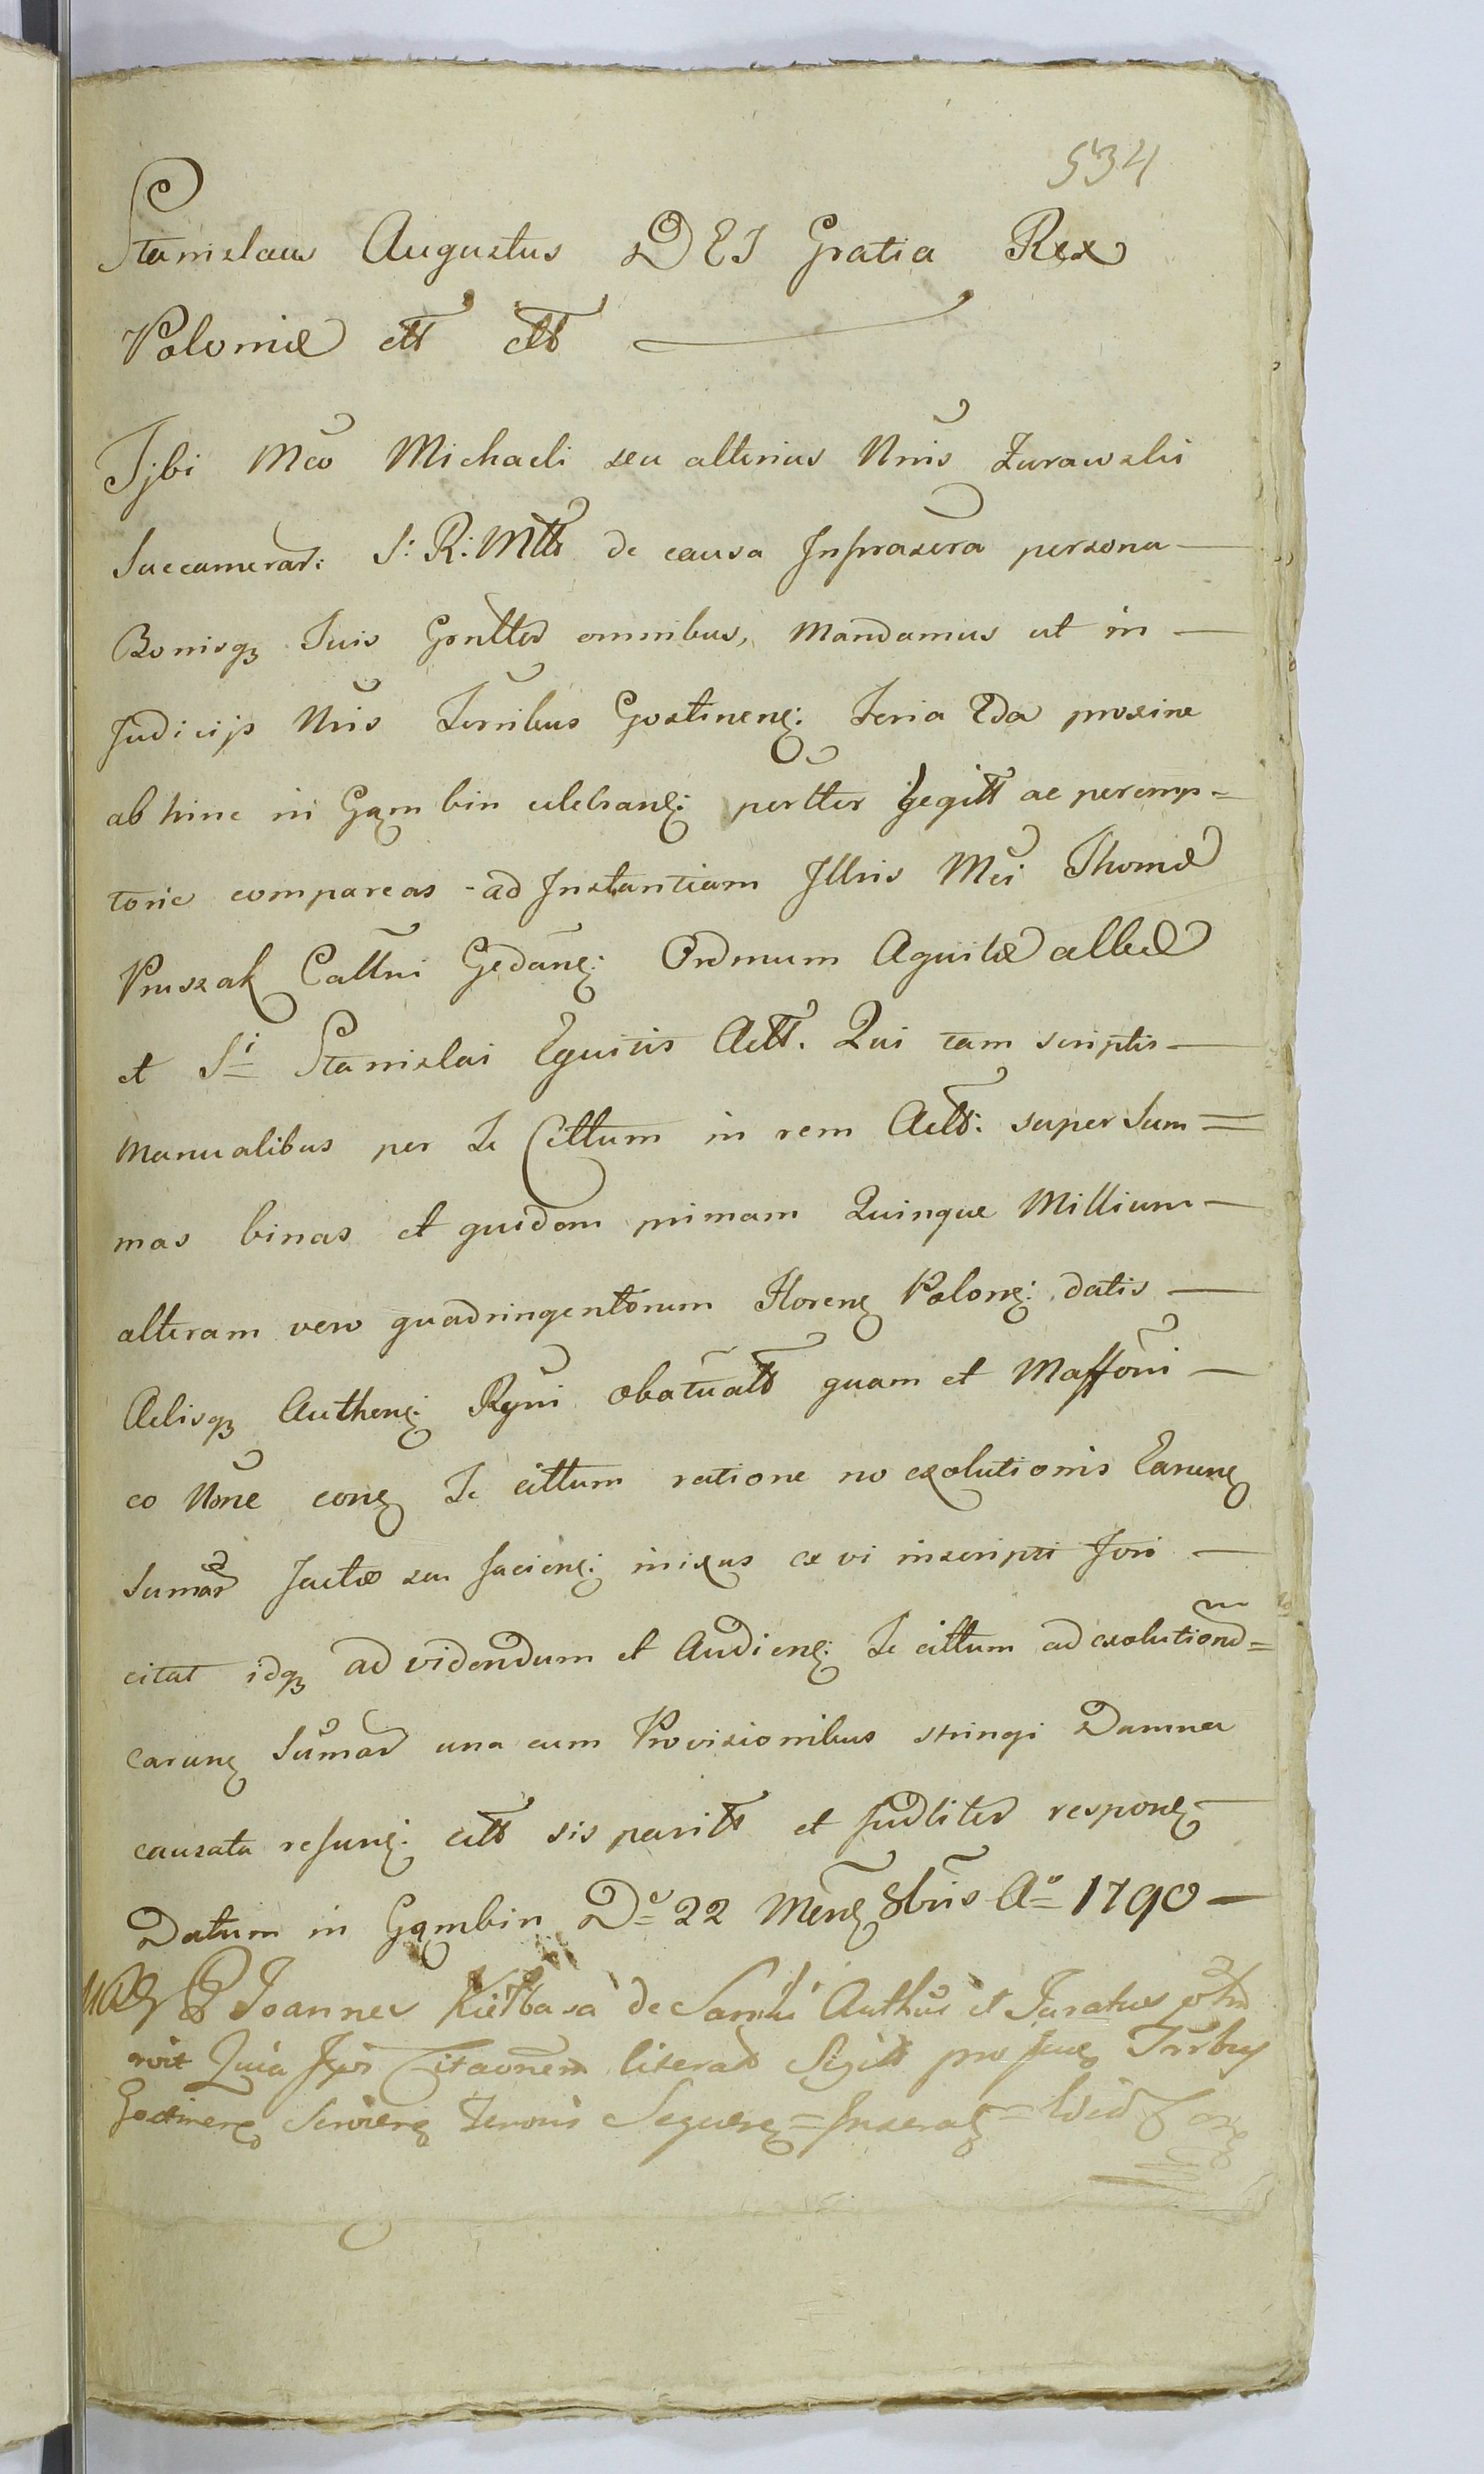 534
Stanislaus Augustus DEI Gratia Rex
Poloniæ ett ett
Tybi Mco Michaeli seu alterius Nnis Zurawski
Succamerar: S: R: Mttis de causa Infrascra persona
Bonisq Tuis Gnlter omnibus, Mandamus ut in
Judicijs Nris Terribus Gostinen: Feria 2da proxime
ab hinc in Gąmbin celebran: perltter legitt ac peremp=
torie compareas ad Instantiam Illris Mci Thomæ
Pruszak Cattni Gedanen: Ordinum Aquilæ albæ
et Si Stanislai Equitis Actt. Qui tam scriptis
Manualibus per Te Cittum in rem Actt: super Sum=
mas binas et quidem primam Quinque Millium
alteram vero quadringentorum Floren Polon: datis
Actisq Authen: Rgni obatuatt quam et Maffoni
eo Nne con Te cittum ratione no exolutionis Earun
Sumar factæ seu facien: inixus ex vi inscripti fori
citat idq ad videndum et Audien: Te cittum ad exolutionem
earun Sumar una cum Provisionibus stringi Damna
causata refun: citt sis paritt et Judliter respon
Datum in Gąmbin D: 22 Men 8bris Ao 1790
Joannes Kiełbasa de Sanki Authus et Juratus
Quia Citaonem literas Sigitt pro Trrbus
Gostinen Servien Terrois Sequen = Inserat =